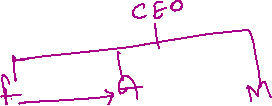 CEO
F A M